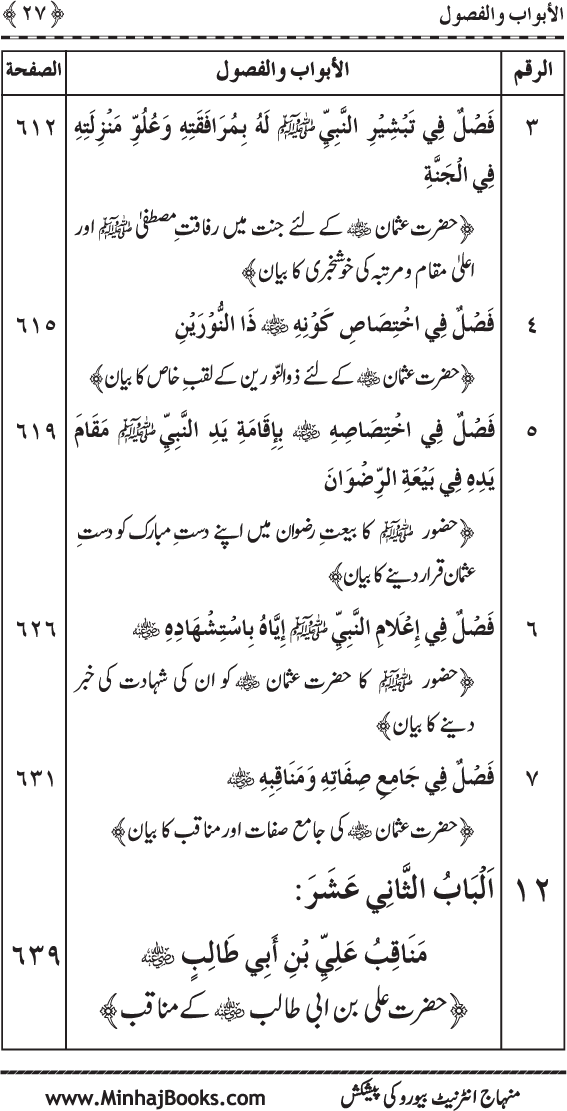 الأبواب والفصول ﴿٢٧﴾
الرقم الأبواب والفصول الصفحة
٣ فَصْلٌ فِي تَبْشِيْرِ النَّبِيِّ ﷺ لَهُ بِمُرَافَقَتِهِ وَعُلُوِّ مَنْزِلَتِهِ ٦١٢
فِي الْجَنَّةِ
﴿حضرت عثمان ؓ کے لئے جنت میں رفاقتِ مصطفیٰ ﷺ اور
اعلیٰ مقام و مرتبہ کی خوشخبری کا بیان﴾
٤ فَصْلٌ فِي اخْتِصَاصِ كَوْنِهِ ؓ ذَا النُّوْرَيْنِ ٦١٥
﴿حضرت عثمان ؓ کے لئے ذوالنّورین کے لقبِ خاص کا بیان﴾
٥ فَصْلٌ فِي اخْتِصَاصِهِ ؓ بِإِقَامَةِ يَدِ النَّبِيِّ ﷺ مَقَامَ ٦١٩
يَدِهِ فِي بَيْعَةِ الرِّضْوَانَ
﴿حضور ﷺ کا بیعتِ رضوان میں اپنے دستِ مبارک کو دستِ
عثمان قرار دینے کا بیان﴾
٦ فَصْلٌ فِي إِعْلَامِ النَّبِيِّ ﷺ إِيَّاهُ بِاسْتِشْهَادِهِ ؓ ٦٢٦
﴿حضور ﷺ کا حضرت عثمان ؓ کو ان کی شہادت کی خبر
دینے کا بیان﴾
٧ فَصْلٌ فِي جَامِعِ صِفَاتِهِ وَمَنَاقِبِهِ ؓ ٦٣١
﴿حضرت عثمان ؓ کی جامع صفات اور مناقب کا بیان﴾
١٢ اَلْبَابُ الثَّانِي عَشَرَ:
مَنَاقِبُ عَلِيِّ بْنِ أَبِي طَالِبٍ ؓ ٦٣٩
﴿حضرت علی بن ابی طالب ؓ کے مناقب﴾
منہاج انٹرنیٹ بیورو کی پیشکش www.MinhajBooks.com